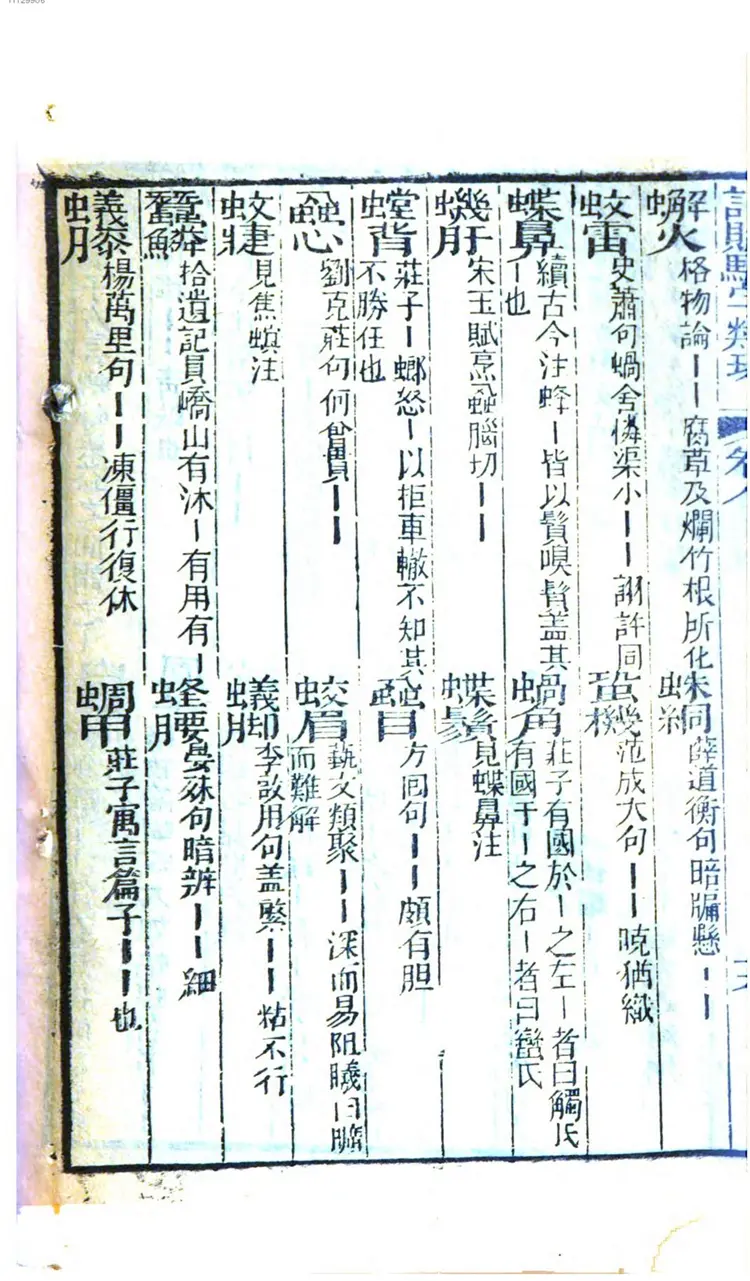 卷八
火 格物論｜｜腐草及爛竹根所化朱同
薛道衡句暗牖懸｜｜
蚊雷 史蕭句蝸舍憐渠小｜｜謝許同
蛩機 范成大句｜｜曉猶織
蝶鼻 續古今注蜂｜皆以鬚嗅鬚盖其
｜也
蝸角 莊子有國於｜之左｜者曰觸氏
有國于｜之右｜者曰蠻氏
蟣肝 宋玉賦烹虱腦切｜｜
蝶鬚 見蝶鼻注
螳背 莊子｜螂怒｜以拒車轍不知其
不勝任也
方回句｜｜頗有胆
劉克莊句何曾貫｜｜
蛟眉 藝文類聚｜｜深而易阻曦日曠
而難解
見焦螟注
蟻脚 李啟用句盖緊｜｜粘不行
拾遺記員嶠山有沐｜有用有｜
蜂腰 晏殊句暗辨｜｜細
楊萬里句｜｜凍僵行復休
蜩甲 莊子寓言篇子｜｜也